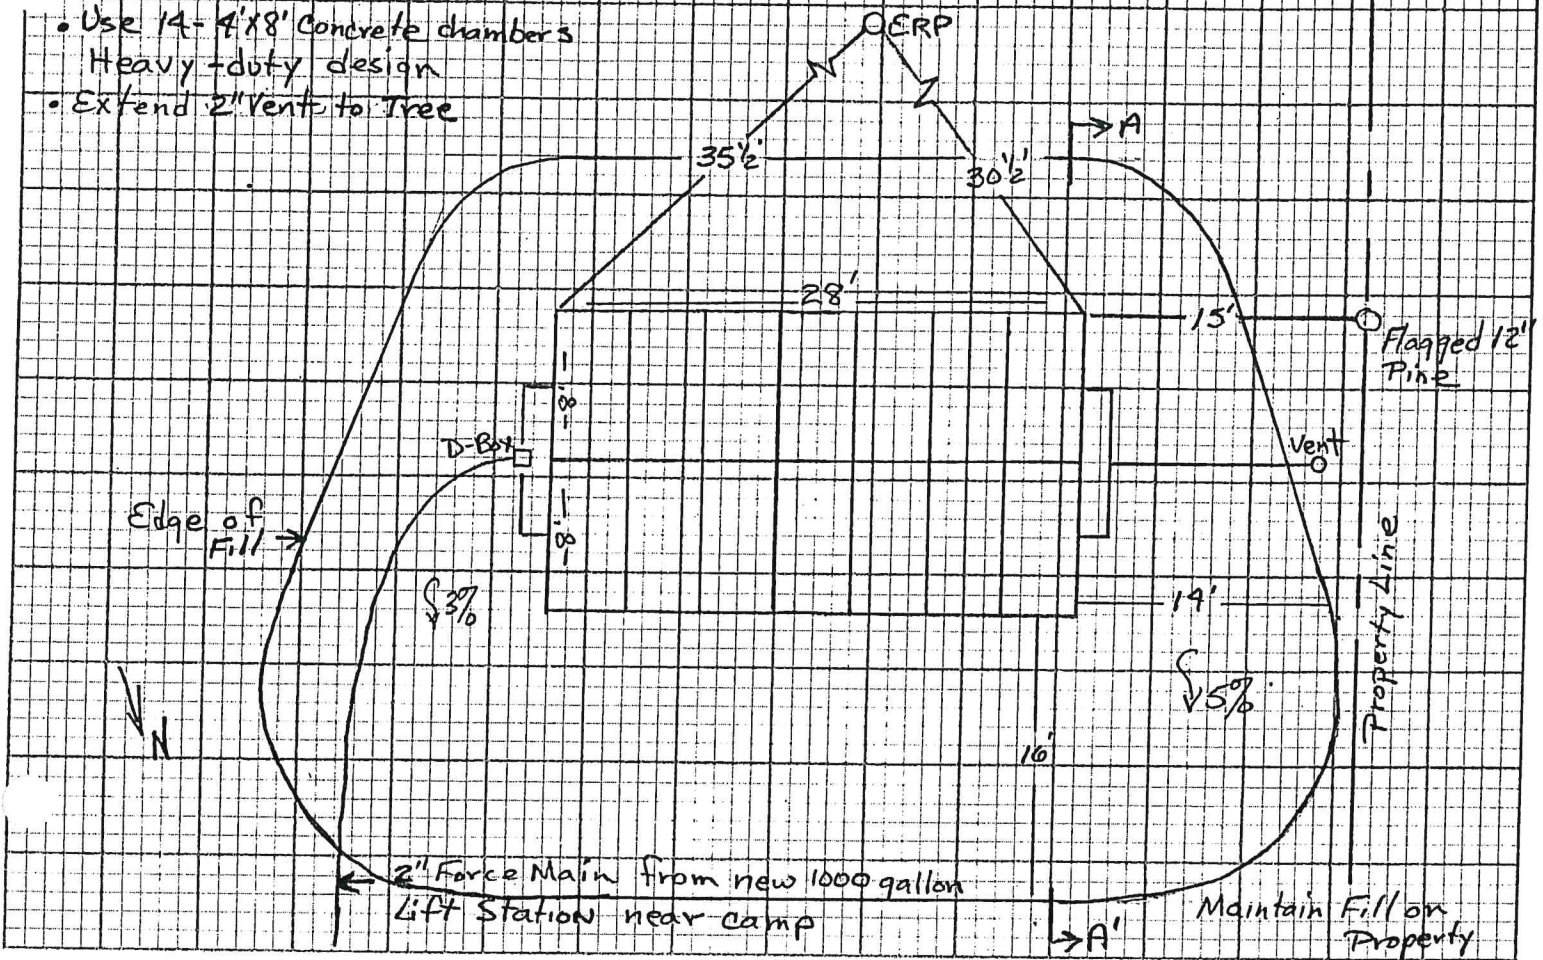 • Use 14- 4'x8' Concrete chambers
Heavy-duty design
• Extend 2" Vent to Tree
ERP
A
35½'
30½'
28'
15'
Flagged 12"
Pine
8'
D-Box
Vent
Edge of
Fill
8'
3%
14'
Property Line
5%
N
16'
2" Force Main from new 1000 gallon
Lift Station near camp
Maintain Fill on
Property
A'